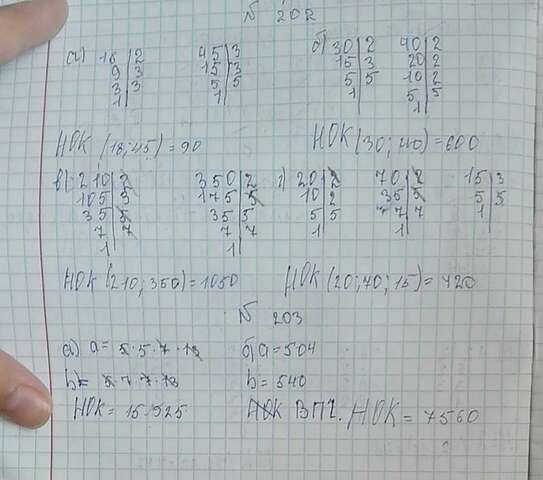 № 202
а) 18|2 45|3 б) 30|2 40|2
9|3 15|3 15|3 20|2
3|3 5|5 5|5 10|2
1| 1| 1| 5|5
1|
НОК (18;45)=90 НОК (30; 40)=600
в) 210|2 350|2 г) 20|2 70|2 15|3
105|3 175|5 10|2 35|5 5|5
35|5 35|5 5|5 7|7 1|
7|7 7|7 1| 1|
1| 1|
НОК (210; 350)=1050 НОК (20; 70; 15)= 420
№ 203
а) a= 5·5·7·13 б) a=504
b= 5·7·7·13 b=540
НОК = 15 925 НОК ВПЧ. НОК = 7560